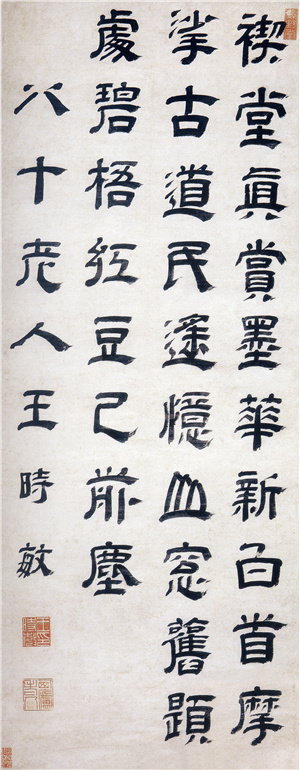 禊堂眞賞墨華新白首摩
挲古道民遙憶山窓舊題
處碧梧紅豆已前塵
八十老人王時敏